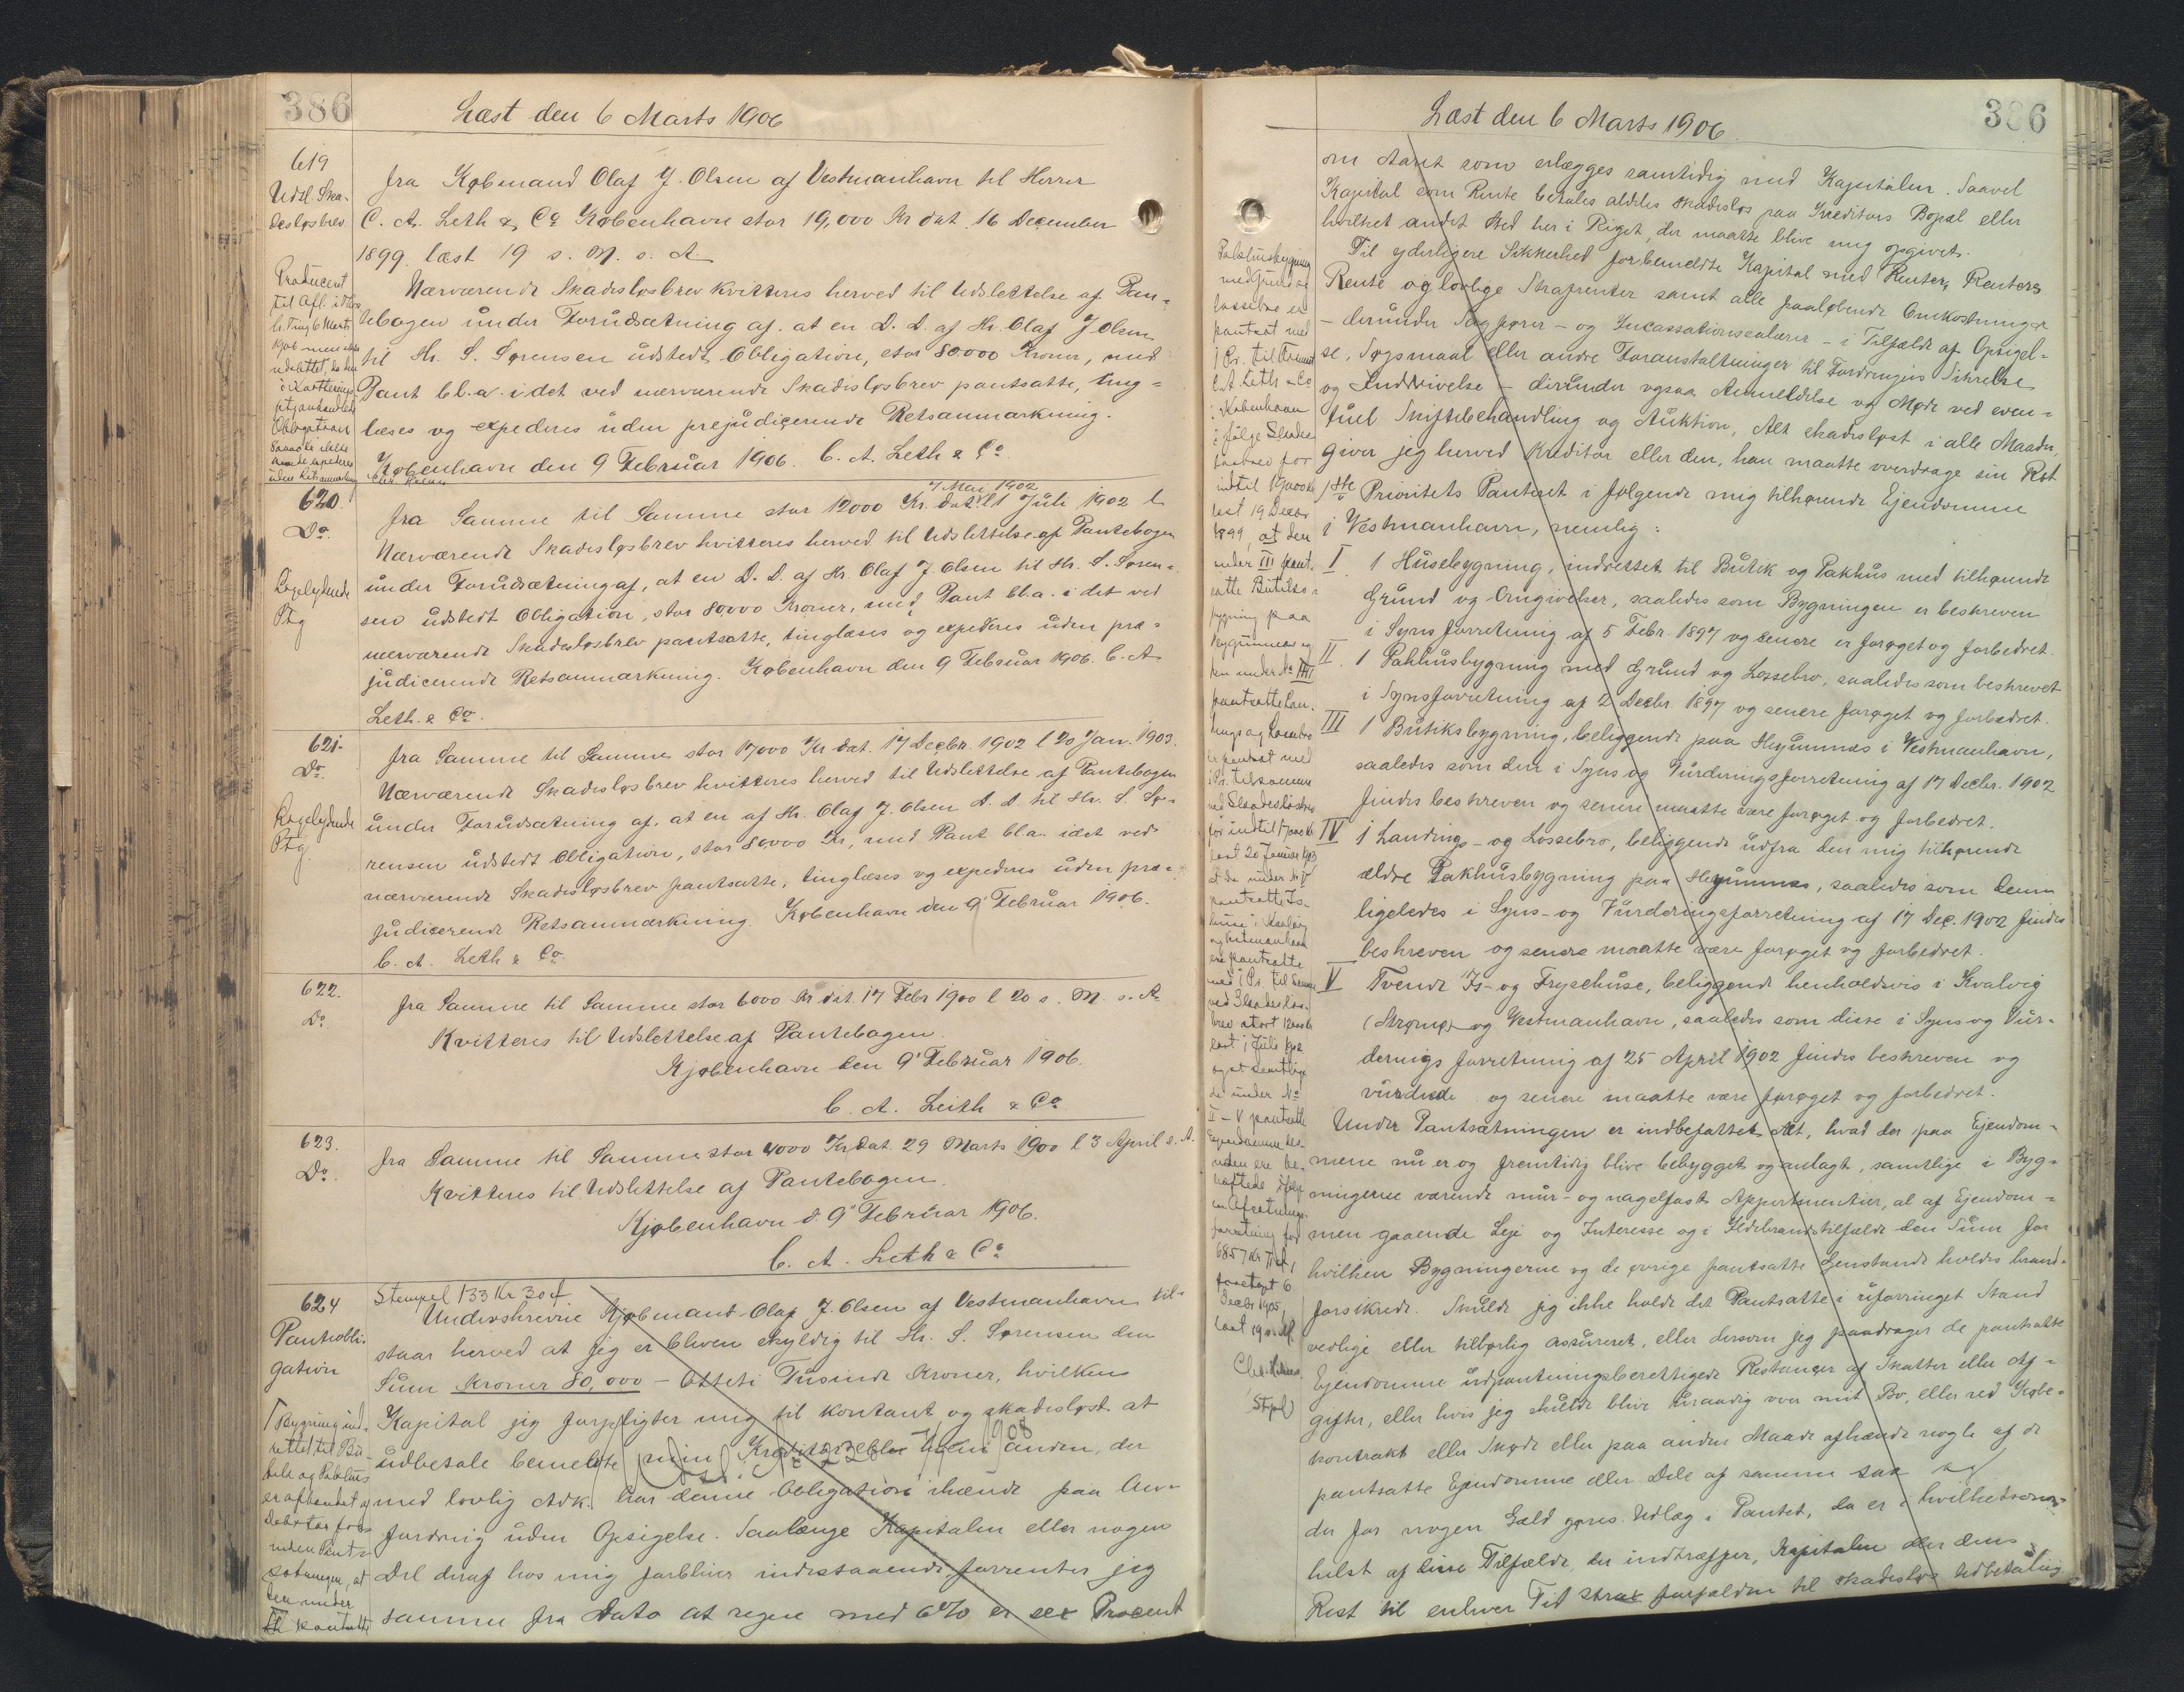 386
Læst den 6 Marts 1906
619
Udsl. Ska-
desløsbrev
fra Købmand Olaf J. Olsen af Vestmanhavn til Herrer
C. A. Leth & Co København stor 19,000 Kr dat. 16 December
1899 læst 19 s. M. s. A.
Producent
Nærværende Skadesløsbrev kvitteres herved til Udslettelse af Pan-
tebogen under Forudsætning af, at en D. D. af Hr. Olaf J Olsen
til Hr. S. Sørensen udstedt Obligation, stor 80.000 Kroner, med
Pant bl.a. i det ved nærværende Skadesløsbrev pantsatte, ting-
læses og expederes uden prejudicerende Retsanmærkning.
København den 9 Februar 1906. C. A. Leth & Co.
620.
Do.
Ligelydende
Ptg
7 Mai 1902
fra Samme til Samme stor 12000 Kr. dat. l 1 Juli 1902
Nærværende Skadesløsbrev kvitteres herved til Udslettelse af Pantebogen
under Forudsætning af, at en D. D. af Hr. Olaf J. Olsen til Hr. S. Søren-
sen udstedt Obligation, stor 80000 Kroner, med Pant bl.a. i det ved
nærværende Skadesløsbrev pantsatte, tinglæses og expederes uden præ-
judicerende Retsanmærkning. København den 9 Februar 1906. C. A
Leth. & Co.
621.
Do.
Ligelydende
Ptg.
fra Samme til Samme stor 17000 Kr dat. 17 Decbr. 1902 l 20 Jan. 1903.
Nærværende Skadesløsbrev kvitteres herved til Udslettelse af Pantebogen
under Forudsætning af, at en af Hr. Olaf J. Olsen D. D. til Hr. S. Sø-
rensen udstedt Obligation, stor 80000 Kr, med Pant bl.a. i det ved
nærværende Skadesløsbrev pantsatte, tinglæses og expederes uden præ-
judicerende Retsanmærkning. København den 9 Februar 1906.
C. A. Leth & Co.
622.
Do
fra Samme til Samme stor 6000 Kr dat. 17 Febr 1900 l 20 s. M. s. A.
Kvitteres til Udslettelse af Pantebogen.
Kjøbenhavn den 9' Februar 1906.
C. A. Leith & Co
623.
Do.
fra Samme til Samme stor 4000 Kr dat. 29 Marts 1900 l 3 April s. A.
Kvitteres til Udslettelse af Pantebogen.
Kjøbenhavn d. 9' Februar 1906.
C. A. Leth & Co
624
Pantobli-
gation
Stempel 133 Kr 30 ø
Underskrevne Kjøbmand Olaf J. Olsen af Vestmanhavn til-
staar herved at jeg er bleven skyldig til Hr. S. Sørensen den
Sum Kroner 80,000 - Otteti Tusinde Kroner, hvilken
Kapital jeg forpligter mig til kontant og skadesløst at
udbetale bemeldte min Kreditor eller hvem anden, der
med lovlig Adk. har denne Obligation ihænde paa An-
fordring uden Opsigelse. Saalænge Kapitalen eller nogen
Del deraf hos mig forbliver indestaaende, forrenter jeg
samme fra Dato at regne med 6% er sex Procent
1 Bygning ind-
rettet til Bu-
tik og Pakhus
er afhændet af
Debitor for-
inden Pant-
sætningen, at
den under
Læst den 6 Marts 1906
386
om Aaret som erlægges samtidig med Kapitalen. Saavel
Kapital som Rente betales aldeles skadesløs paa Kreditors Bopæl eller
hvilket andet Sted her i Riget, der maatte blive mig opgivet.
Til yderligere Sikkerhed for bemeldte Kapital med Renter, Renters
Rente og lovlige Straprenter samt alle paaløbende Omkostninger
- derunder Sagfører- og Incassationssalærer - i Tilfælde af Opsigel-
se, Søgsmaal eller andre Foranstaltninger til Fordringens Sikrelse
og Inddrivelse - derunder ogsaa Anmeldelse og Møde ved even-
tuel Skiftebehandling og Auktion, Alt skadesløst i alle Maader,
giver jeg herved Kreditor eller den, han maatte overdrage sin Ret
1ste Prioritets Panteret i følgende mig tilhørende Ejendomme
i Vestmanhavn, nemlig:
I. 1 Husebygning, indrettet til Butik og Pakhus med tilhørende
Grund og Omgivelser, saaledes som Bygningen er beskreven
i Synsforretning af 5 Febr. 1897 og senere er forøget og forbedret.
II. 1 Pakhusbygning med Grund og Lossebro, saaledes som beskrevet
i Synsforretning af 2 Decbr 1897 og senere forøget og forbedret.
III 1 Butiksbygning, beliggende paa Heyumnæs i Vestmanhavn,
saaledes som den i Syns og Vurderingsforretning af 17 Decbr. 1902
findes beskreven og senere maatte være forøget og forbedret.
IV 1 Landings- og Lossebro, beliggende udfra den mig tilhørende
ældre Pakhusbygning paa Heyumnæs, saaledes som denne
ligeledes i Syns- og Vurderingsforretning af 17 Dec. 1902 findes
beskreven og senere maatte være forøget og forbedret.
V Tvende Is- og Frysehuse, beliggende henholdsvis i Kvalvig
(Strømø) og Vestmanhavn, saaledes som disse i Syns og Vur-
derings forretning af 25 April 1902 findes beskreven og
vurderede og senere maatte være forøget og forbedret.
Under Pantsætningen er indbefattet Alt, hvad der paa Ejendom-
mene nu er og fremtidig blive bebygget og anlagt, samtlige i Byg-
ningerne værende mur- og nagelfast Appertinentier, al af Ejendom-
men gaaende Leje og Interesse og i Ildebrandstilfælde den Sum for
hvilken Bygningerne og de øvrige pantsatte Genstande holdes brand-
forsikrede. Skulde jeg ikke holde det Pantsatte i uforringet Stand
vedlige eller tilbørlig assureret, eller dersom jeg paadrager de pantsatte
Ejendomme udpantningsberettigede Restancer af Skatter eller Af-
gifter, eller hvis jeg skulde blive uraadig over mit Bo, eller ved Købe-
kontrakt eller Skøde eller paa anden Maade afhænde nogle af de
pantsatte Ejendomme eller Dele af samme saa og
der for nogen Gæld gøres Udlæg i Pantet, da er i hvilketsom-
helst af disse Tilfælde, der indtræffer, Kapitalen eller dens
Rest til enhver Tid strax forfalden til skadesløs Udbetaling
Pakhusbygning
med Grund og
Lossebro er
pantsat med
1 Pr. til Firmaet
C. A. Leth & Co
i København
ifølge Skades-
løsbrev for
indtil 19000 Kr
læst 19 Decbr
1899, at den
under III pant-
satte Butiks-
bygning paa